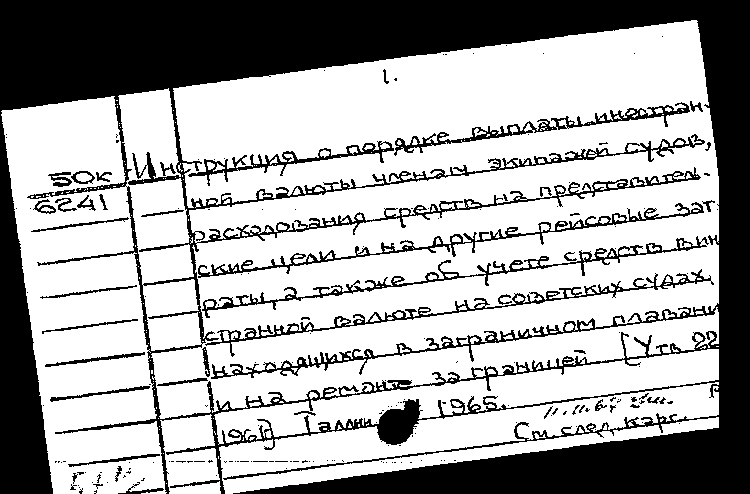 1.
50к Инструкция о порядке выплаты иностран-
6241 ной валюты членам экипажей судов,
расходования средств на представитель-
ские цели и на другие рейсовые зат-
раты, а также об учете средств в ин
странной валюте на советских судах,
находящихся в заграничном плавани
и на ремонте за границей [Утв. 22
196 ] Таллин 1965.
См. след. карт.